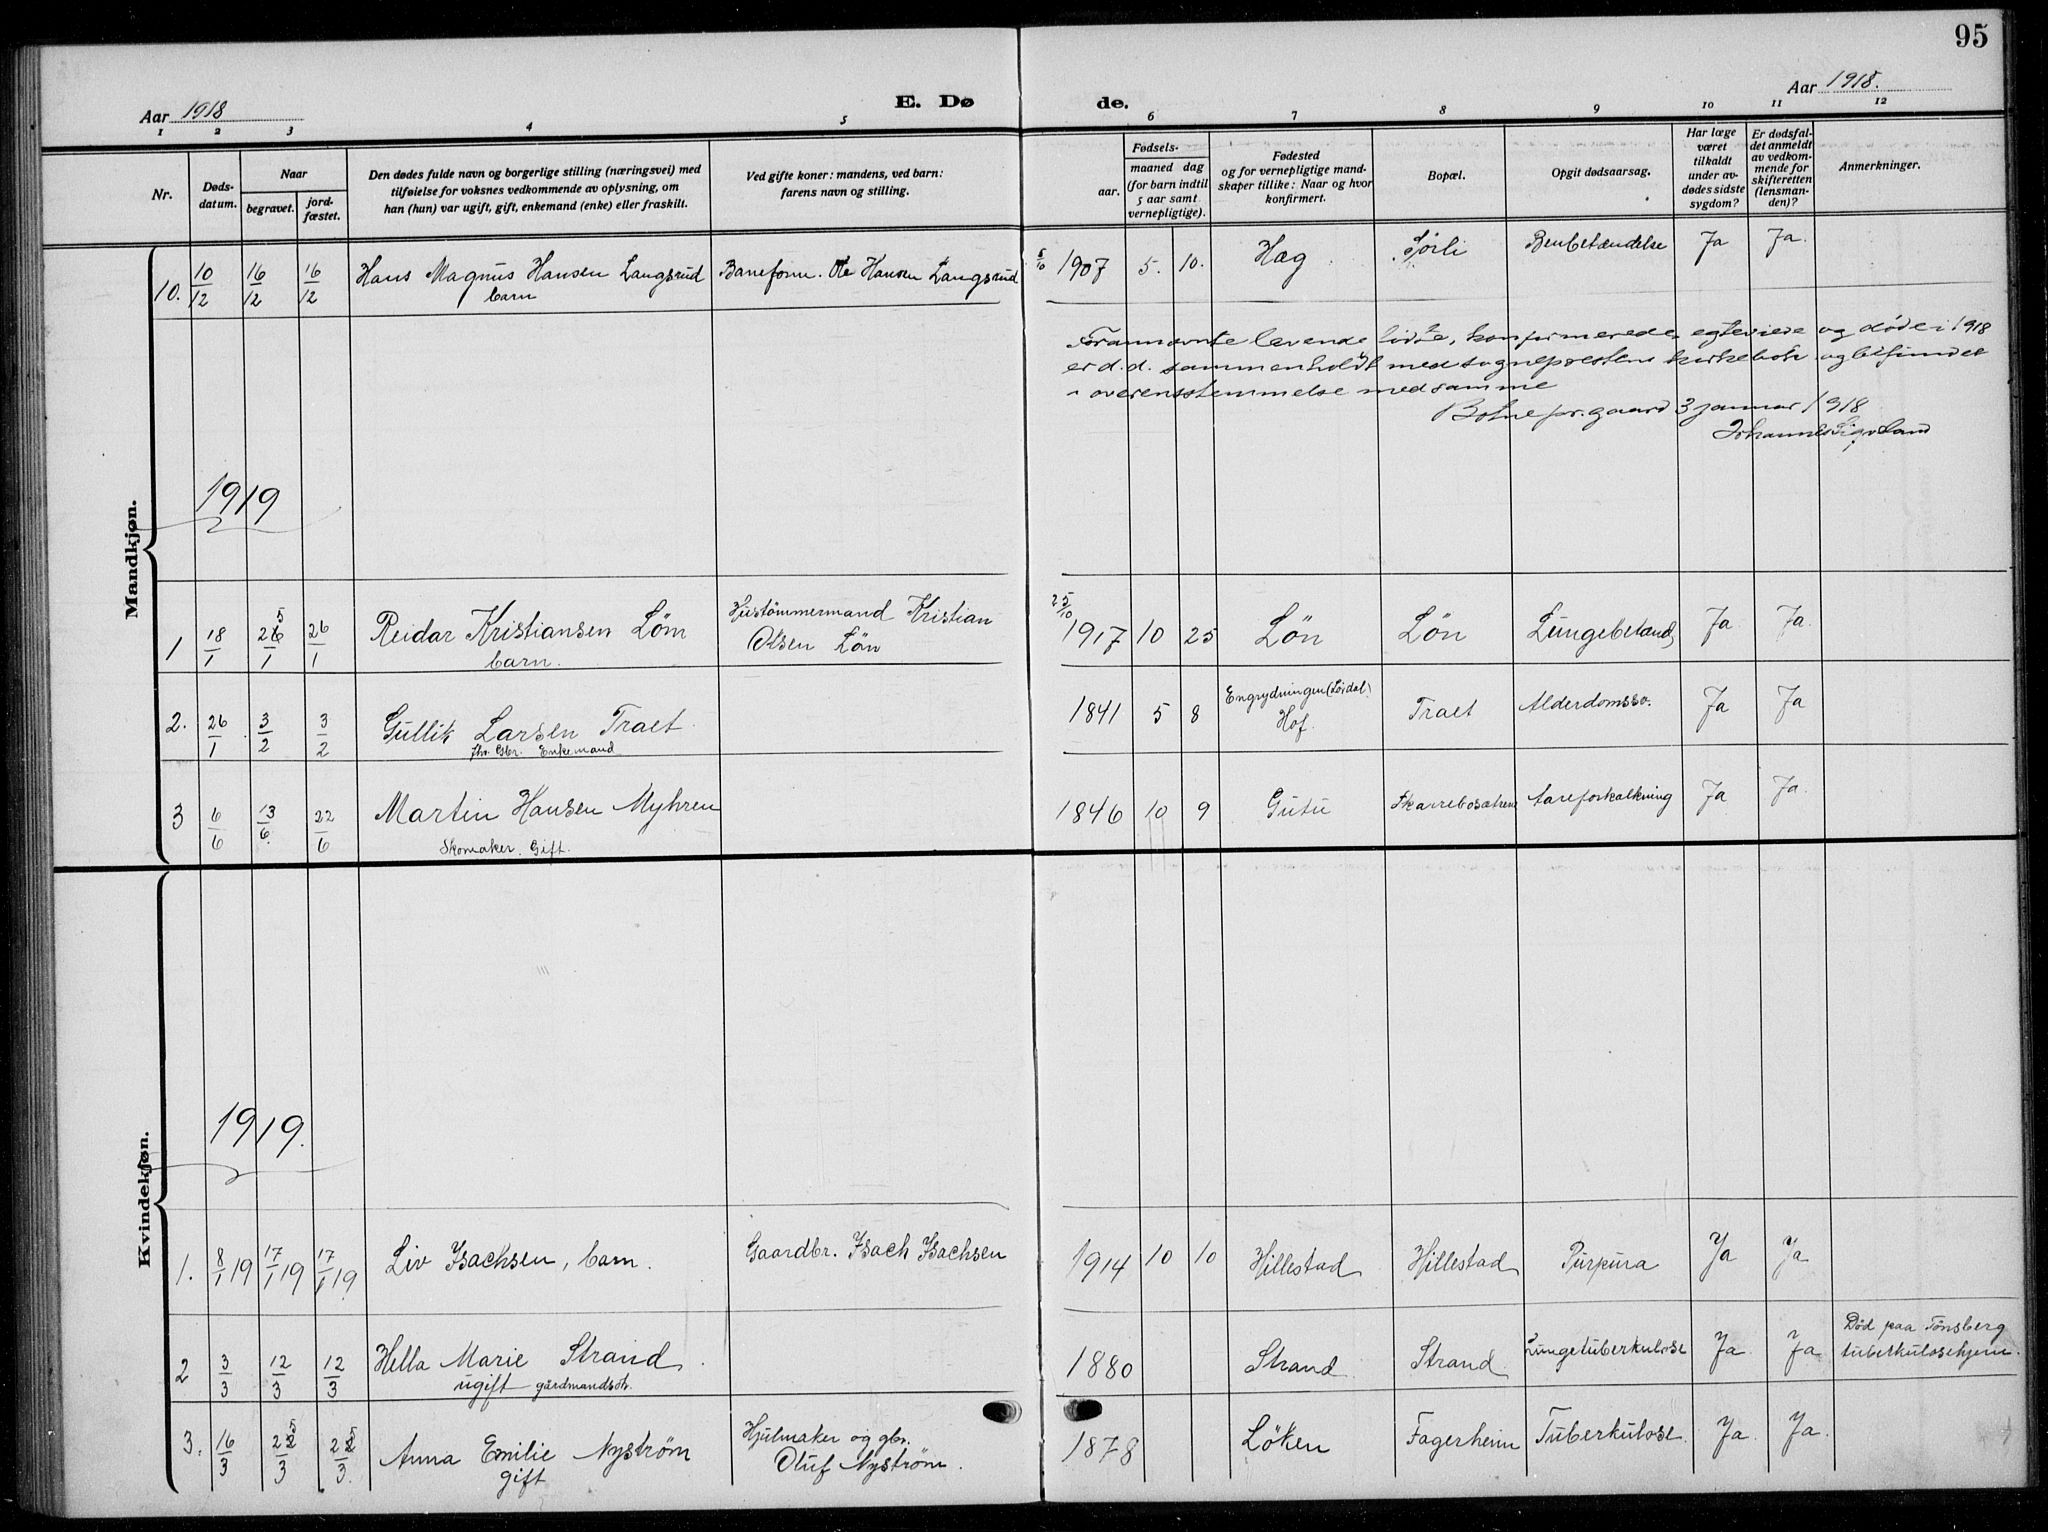 95
Aar 1918 E. Døde. Aar 1918.
1 2 3 4 5 6 7 8 9 10 11 12
Nr.
Døds-
datum.
Naar
begravet.
jord-
fæstet.
Den dødes fulde navn og borgerlige stilling (næringsvei) med
tilføielse for voksnes vedkommende av oplysning, om
han (hun) var ugift, gift, enkemand (enke) eller fraskilt.
Ved gifte koner: mandens, ved barn:
farens navn og stilling.
Fødsels-
aar.
maaned dag
(for barn indtil
5 aar samt
vernepligtige).
Fødested
og for vernepligtige mand-
skaper tillike: Naar og hvor
konfirmert.
Bopæl.
Opgit dødsaarsag.
Har læge
været
tilkaldt
under av-
dødes sidste
sygdom?
Er dødsfal-
det anmeldt
av vedkom-
mende for
skifteretten
(lensman-
den)?
Anmerkninger.
Mandkjøn.
10. 10/12 16/12 16/12 Hans Magnus Hansen Langsrud Baneform. Ole Hansen Langsrud 5/10 1907 5. 10. Hæg Sørli Benbetændelse Ja Ja.
barn
Forannævnte levende fødte, konfirmerede, egteviede og døde i 1918
er d.d. sammenholdt med sogneprestens kirkebok og befundet
i overensstemmelse med samme
Botne pr.gaard 3 januar 1918
Johannes Sigvland
1919
1 18/1 265/1 26/1 Reidar Kristiansen Löm Hustömmermand Kristian 25/10 1917 10 25 Løn Løn Lungebetænd, Ja. Ja.
barn. Olsen Løn
2. 26/1 3/2 3/2 Gullik Larsen Traet 1841 5 8 Engrydningen (Løvdal) Hof. Traet Alderdomssv. Ja Ja
fhv. Gbr. Enkemand
3 6/6 13/6. 22/6 Martin Hansen Myhren 1846 10 9 Gutu Skarrebosætren Aareforkalkning Ja Ja.
Skomaker. Gift.
Kvindekjøn.
1919.
1. 8/1 19 17/1 19 17/1 19 Liv Isachsen, barn. Gaardbr. Isach Isachsen 1914 10 10 Hillestad Hillestad Purpura Ja Ja
2 3/3 12/3 12/3 Hella Marie Strand 1880 Strand Strand Lungetuberkulose Ja Ja Død paa Tönsberg
ugift gårdmandsdtr. tuberkulosehjem.
3. 16/3 225/3 225/3. Anna Emilie Nyström Hjulmaker og gbr. 1878 Løken Fagerheim Tuberkulose. Ja Ja.
gift Oluf Nyström.